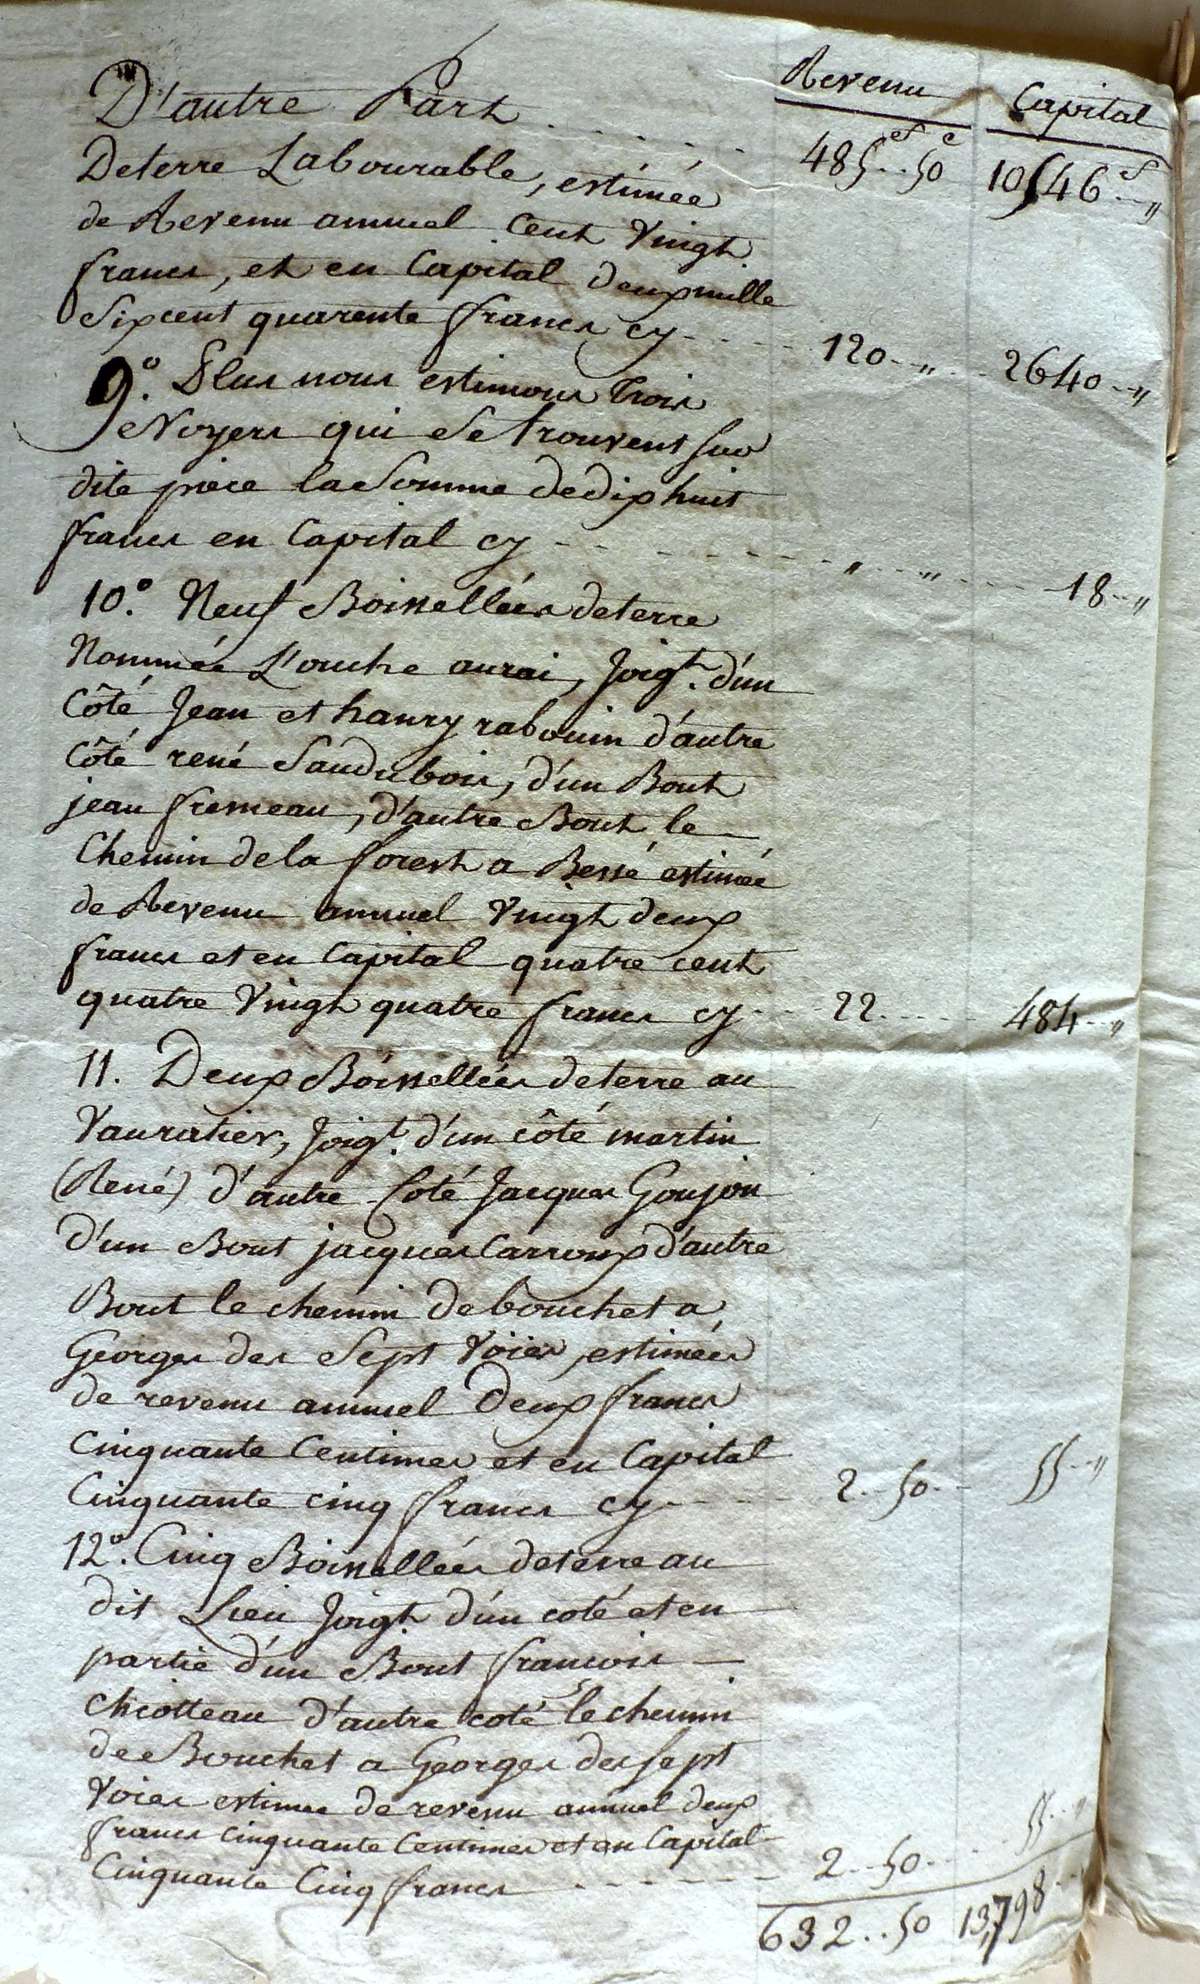 Revenu Capital
D'autre Part . . . . . . 485f..50c 10546f..„
De terre Labourable, estimée
de Revenu annuel Cent Vingt
francs, et en Capital deux mille
Six cent quarente francs cy ---- 120--„-- 2640--„
9.° Plus nous estimons Trois
Noyers qui Se trouvent sur
dite piece la Somme de dix huit
francs en Capital cy - - - - - - „ -- „ - - - 18--„
10.° Neuf Boissellées de terre
Nommée L'ouche aurai, Joig.t d'un
Côté Jean et hanry rabouin d'autre
Côté rené Saudubois, d'un Bout
jean fremeau, d'autre Bout le
Chemin de la forest a Bessé estimée
de Revenu annuel Vingt deux
francs et en Capital quatre cent
quatre Vingt quatre francs cy --- 22 - - - - - 484--„
11. Deux Boissellées de terre au
Vauratier, Joig.t d'un côté martin
(René) d'autre Coté Jacques Goujon
d'un Bout jacques Carroux d'autre
Bout le chemin de bouchet a
Georges des Sept Voies, estimées
de revenu annuel Deux francs
Cinquante Centimes et en Capital
Cinquante cinq francs cy - - - - 2..50 -- 55--„
12.° Cinq Boissellées de terre au
dit Lieu Joig.t d'un coté et en
partie d'un Bout francois
Chiotteau d'autre coté le chemin
de Bouchet a Georges des Sept
Voies estimée de revenu annuel deux
francs Cinquante Centimes et en Capital
Cinquante Cinq francs - - - - - - 2..50 - - - 55--„
632..50 13,798